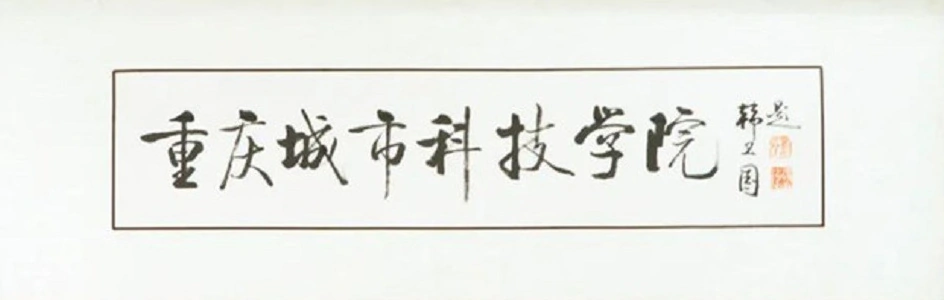 重庆城市科技学院
韩卫国
题